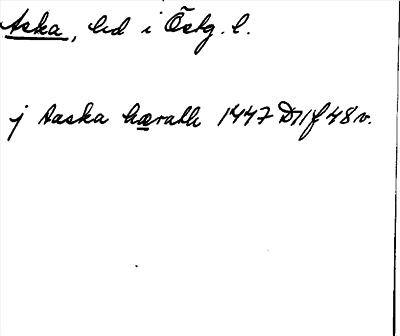 Aska, hd i Östg. l.
j Aaska hæradh 1447 D11 f 48 v.